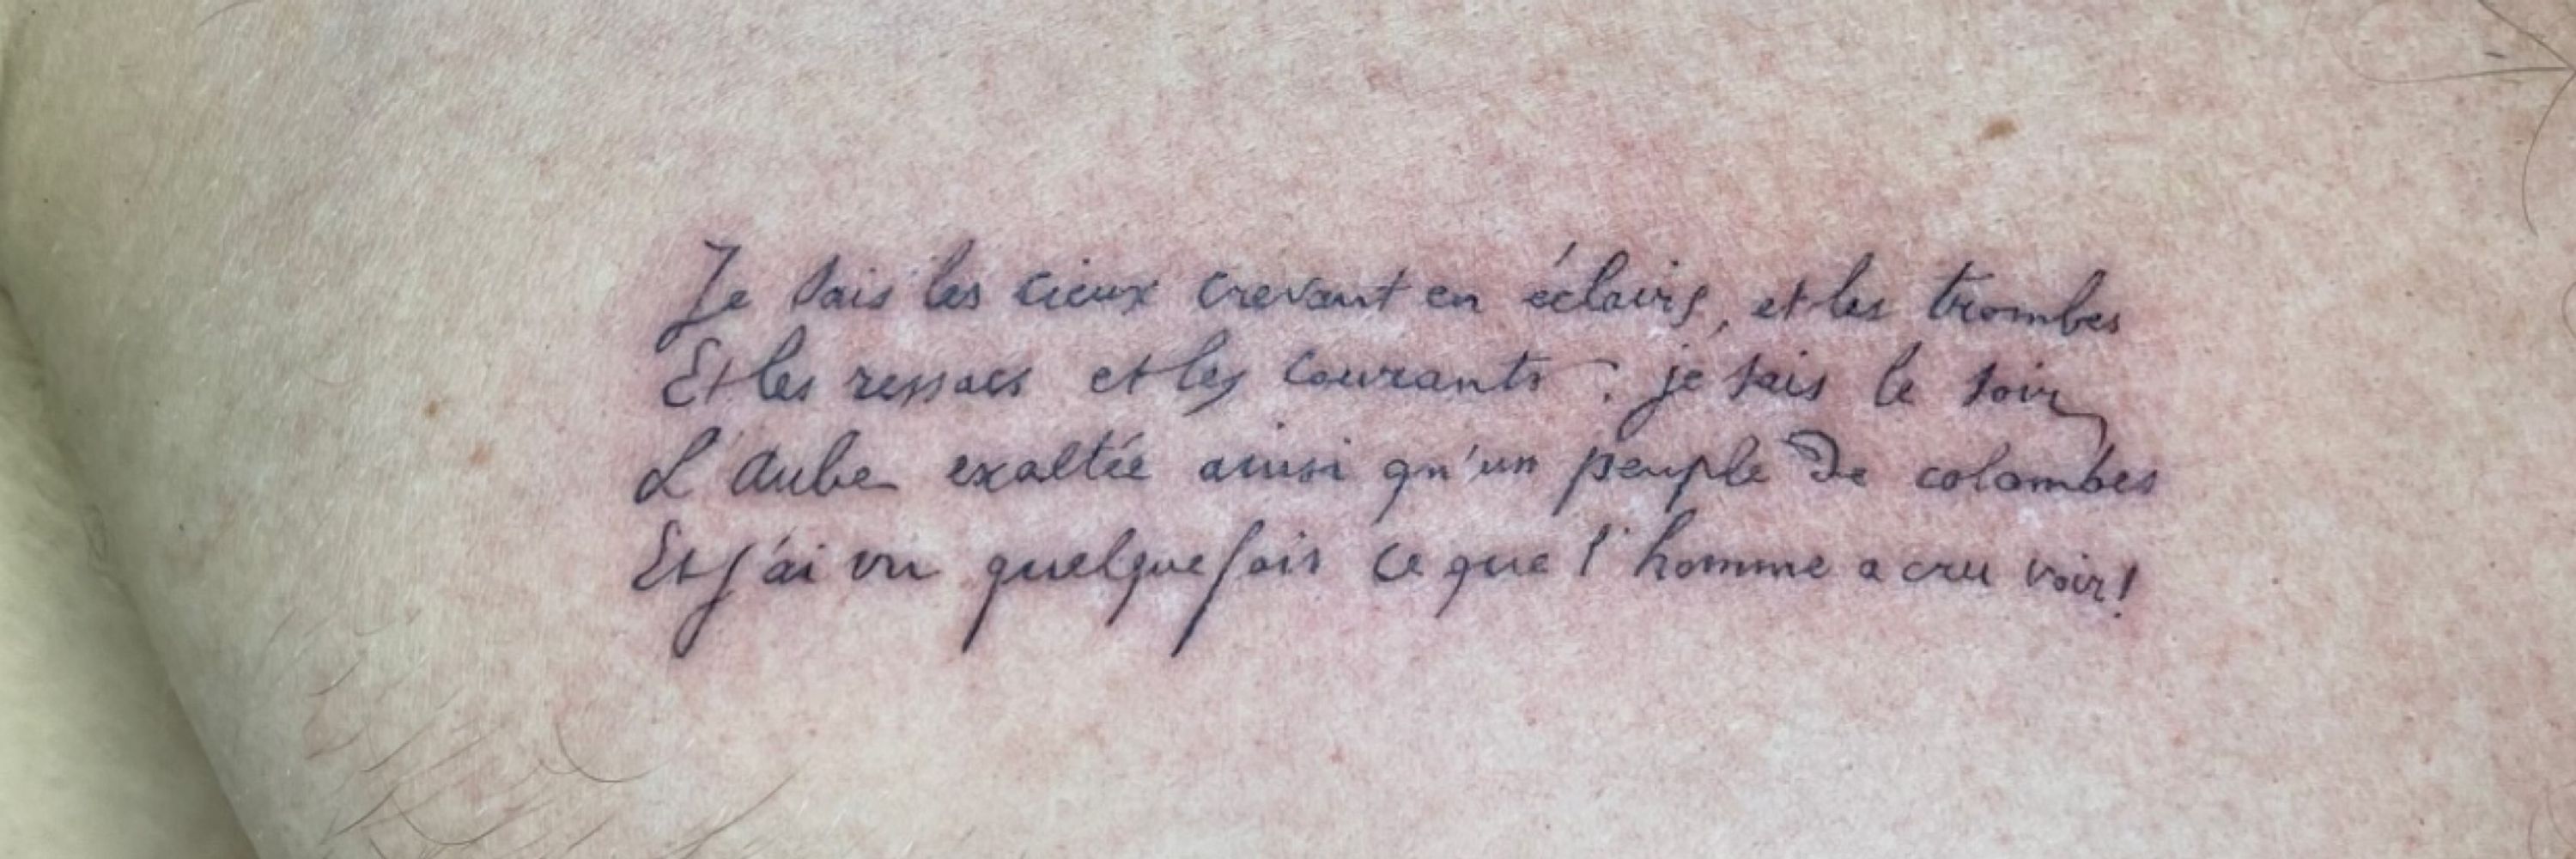 Je sais les cieux crevant en éclairs, et les trombes
Et les ressacs et les courants : je sais le soir,
L'aube exaltée ainsi qu'un peuple de colombes
Et j'ai vu quelquefois ce que l'homme a cru voir!